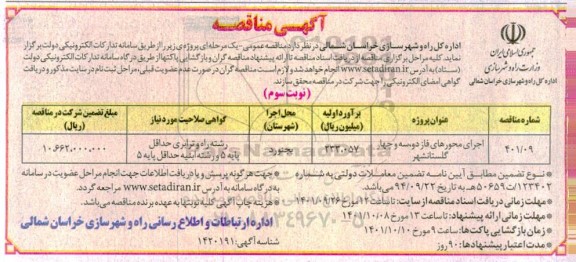 آگهی مناقصه
جمهوری اسلامی ایران
وزارت راه و شهرسازی
اداره کل راه و شهرسازی خراسان شمالی
اداره کل راه و شهرسازی خراسان شمالی در نظر دارد مناقصه عمومی - یک مرحله‌ای پروژه‌ی زیر را از طریق سامانه تدارکات الکترونیکی دولت برگزار
نماید. کلیه مراحل برگزاری مناقصه از دریافت اسناد مناقصه تا ارائه پیشنهاد مناقصه گران و بازگشایی پاکتها از طریق درگاه سامانه تدارکات الکترونیکی دولت
(ستاد) به آدرس www.setadiran.ir انجام خواهد شد و لازم است مناقصه گران در صورت عدم عضویت قبلی، مراحل ثبت نام در سایت مذکور و دریافت
گواهی امضای الکترونیکی را جهت شرکت در مناقصه محقق سازند.
(نوبت سوم)
شماره مناقصه | عنوان پروژه | برآورد اولیه (میلیون ریال) | محل اجرا (شهرستان) | گواهی صلاحیت مورد نیاز | مبلغ تضمین شرکت در مناقصه (ریال)
۴۰۱/۰۹ | اجرای محورهای فاز دو سه و چهار گلستانشهر | ۲۳۳.۰۵۷ | بجنورد | رشته راه و ترابری حداقل پایه ۵ و رشته ابنیه حداقل پایه ۵ | ۱۰.۶۶۲.۰۰۰.۰۰۰
• نوع تضمین مطابق آیین نامه تضمین معاملات دولتی به شماره
۱۲۳۴۰۲/ت۵۰۶۵۹هـ به تاریخ ۹۴/۰۹/۲۲ می‌باشد.
• مهلت زمانی دریافت اسناد مناقصه از سایت: ساعت ۱۴ مورخ ۱۴۰۱/۰۹/۲۶
• مهلت زمانی ارائه پیشنهاد: تا ساعت ۱۳ مورخ ۱۴۰۱/۱۰/۰۸
• زمان بازگشایی پاکت‌ها: ساعت ۹ مورخ ۱۴۰۱/۱۰/۱۰
• مدت اعتبار پیشنهادها: ۹۰ روز
• جهت هرگونه پرسش و یا دریافت اطلاعات جهت انجام مراحل عضویت در سامانه
به درگاه سامانه به آدرس www.setadiran.ir مراجعه گردد.
• هزینه چاپ آگهی کلیه نوبتها به عهده برنده مناقصه می‌باشد.
اداره ارتباطات و اطلاع رسانی راه و شهرسازی خراسان شمالی
شناسه آگهی: ۱۴۲۰۱۹۱